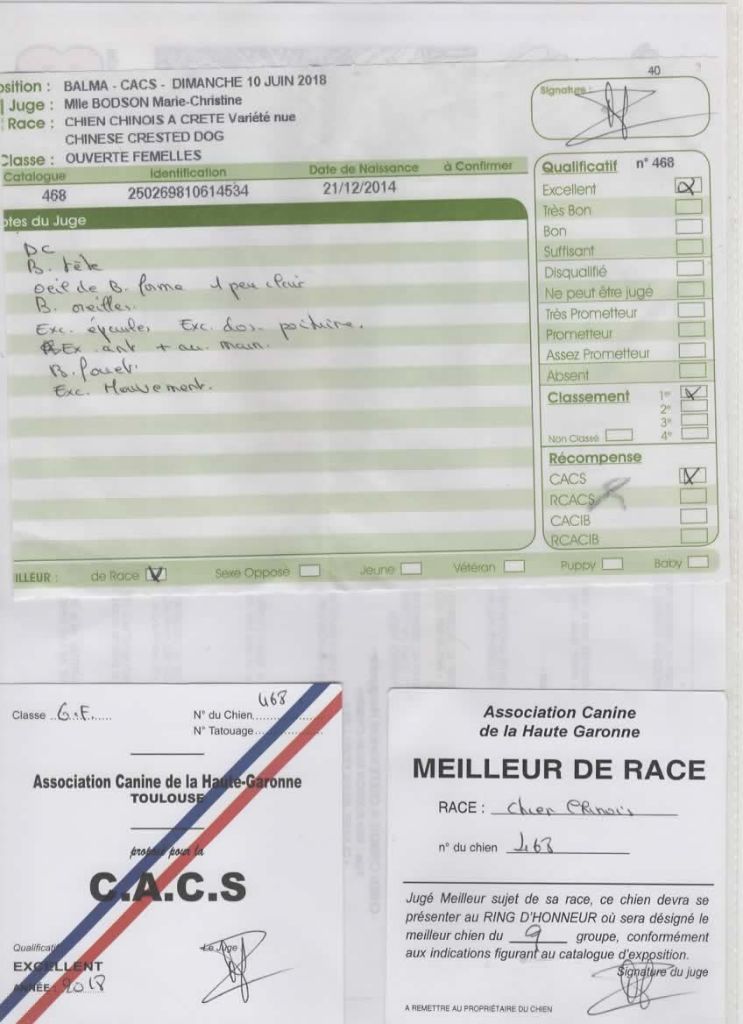 40
osition : BALMA - CACS - DIMANCHE 10 JUIN 2018
Juge : Mlle BODSON Marie-Christine
Race : CHIEN CHINOIS A CRETE Variété nue
CHINESE CRESTED DOG
Classe : OUVERTE FEMELLES
Signature :
Catalogue Identification Date de Naissance à Confirmer
468 250269810614534 21/12/2014
otes du Juge
DC
B. tête
oeil de B. forme 1 peu clair
B. oreilles.
Exc. épaules Exc. dos. poitrine.
Ex. ant + au. main.
B. fouet.
Exc. Mouvement.
Qualificatif n° 468
Excellent
Très Bon
Bon
Suffisant
Disqualifié
Ne peut être jugé
Très Prometteur
Prometteur
Assez Prometteur
Absent
Classement 1er
2e
3e
Non Classé 4e
Récompense
CACS
RCACS
CACIB
RCACIB
ILLEUR : de Race Sexe Opposé Jeune Vétéran Puppy Baby
Classe ..G.F......
N° du Chien 468
N° Tatouage
Association Canine de la Haute-Garonne
TOULOUSE
proposé pour la
C.A.C.S
Qualificatif
EXCELLENT
ANNÉE : 2018
Le Juge
Association Canine
de la Haute Garonne
MEILLEUR DE RACE
RACE : Chien Chinois
n° du chien 468
Jugé Meilleur sujet de sa race, ce chien devra se
présenter au RING D'HONNEUR où sera désigné le
meilleur chien du 9 groupe, conformément
aux indications figurant au catalogue d'exposition.
Signature du juge
A REMETTRE AU PROPRIÉTAIRE DU CHIEN